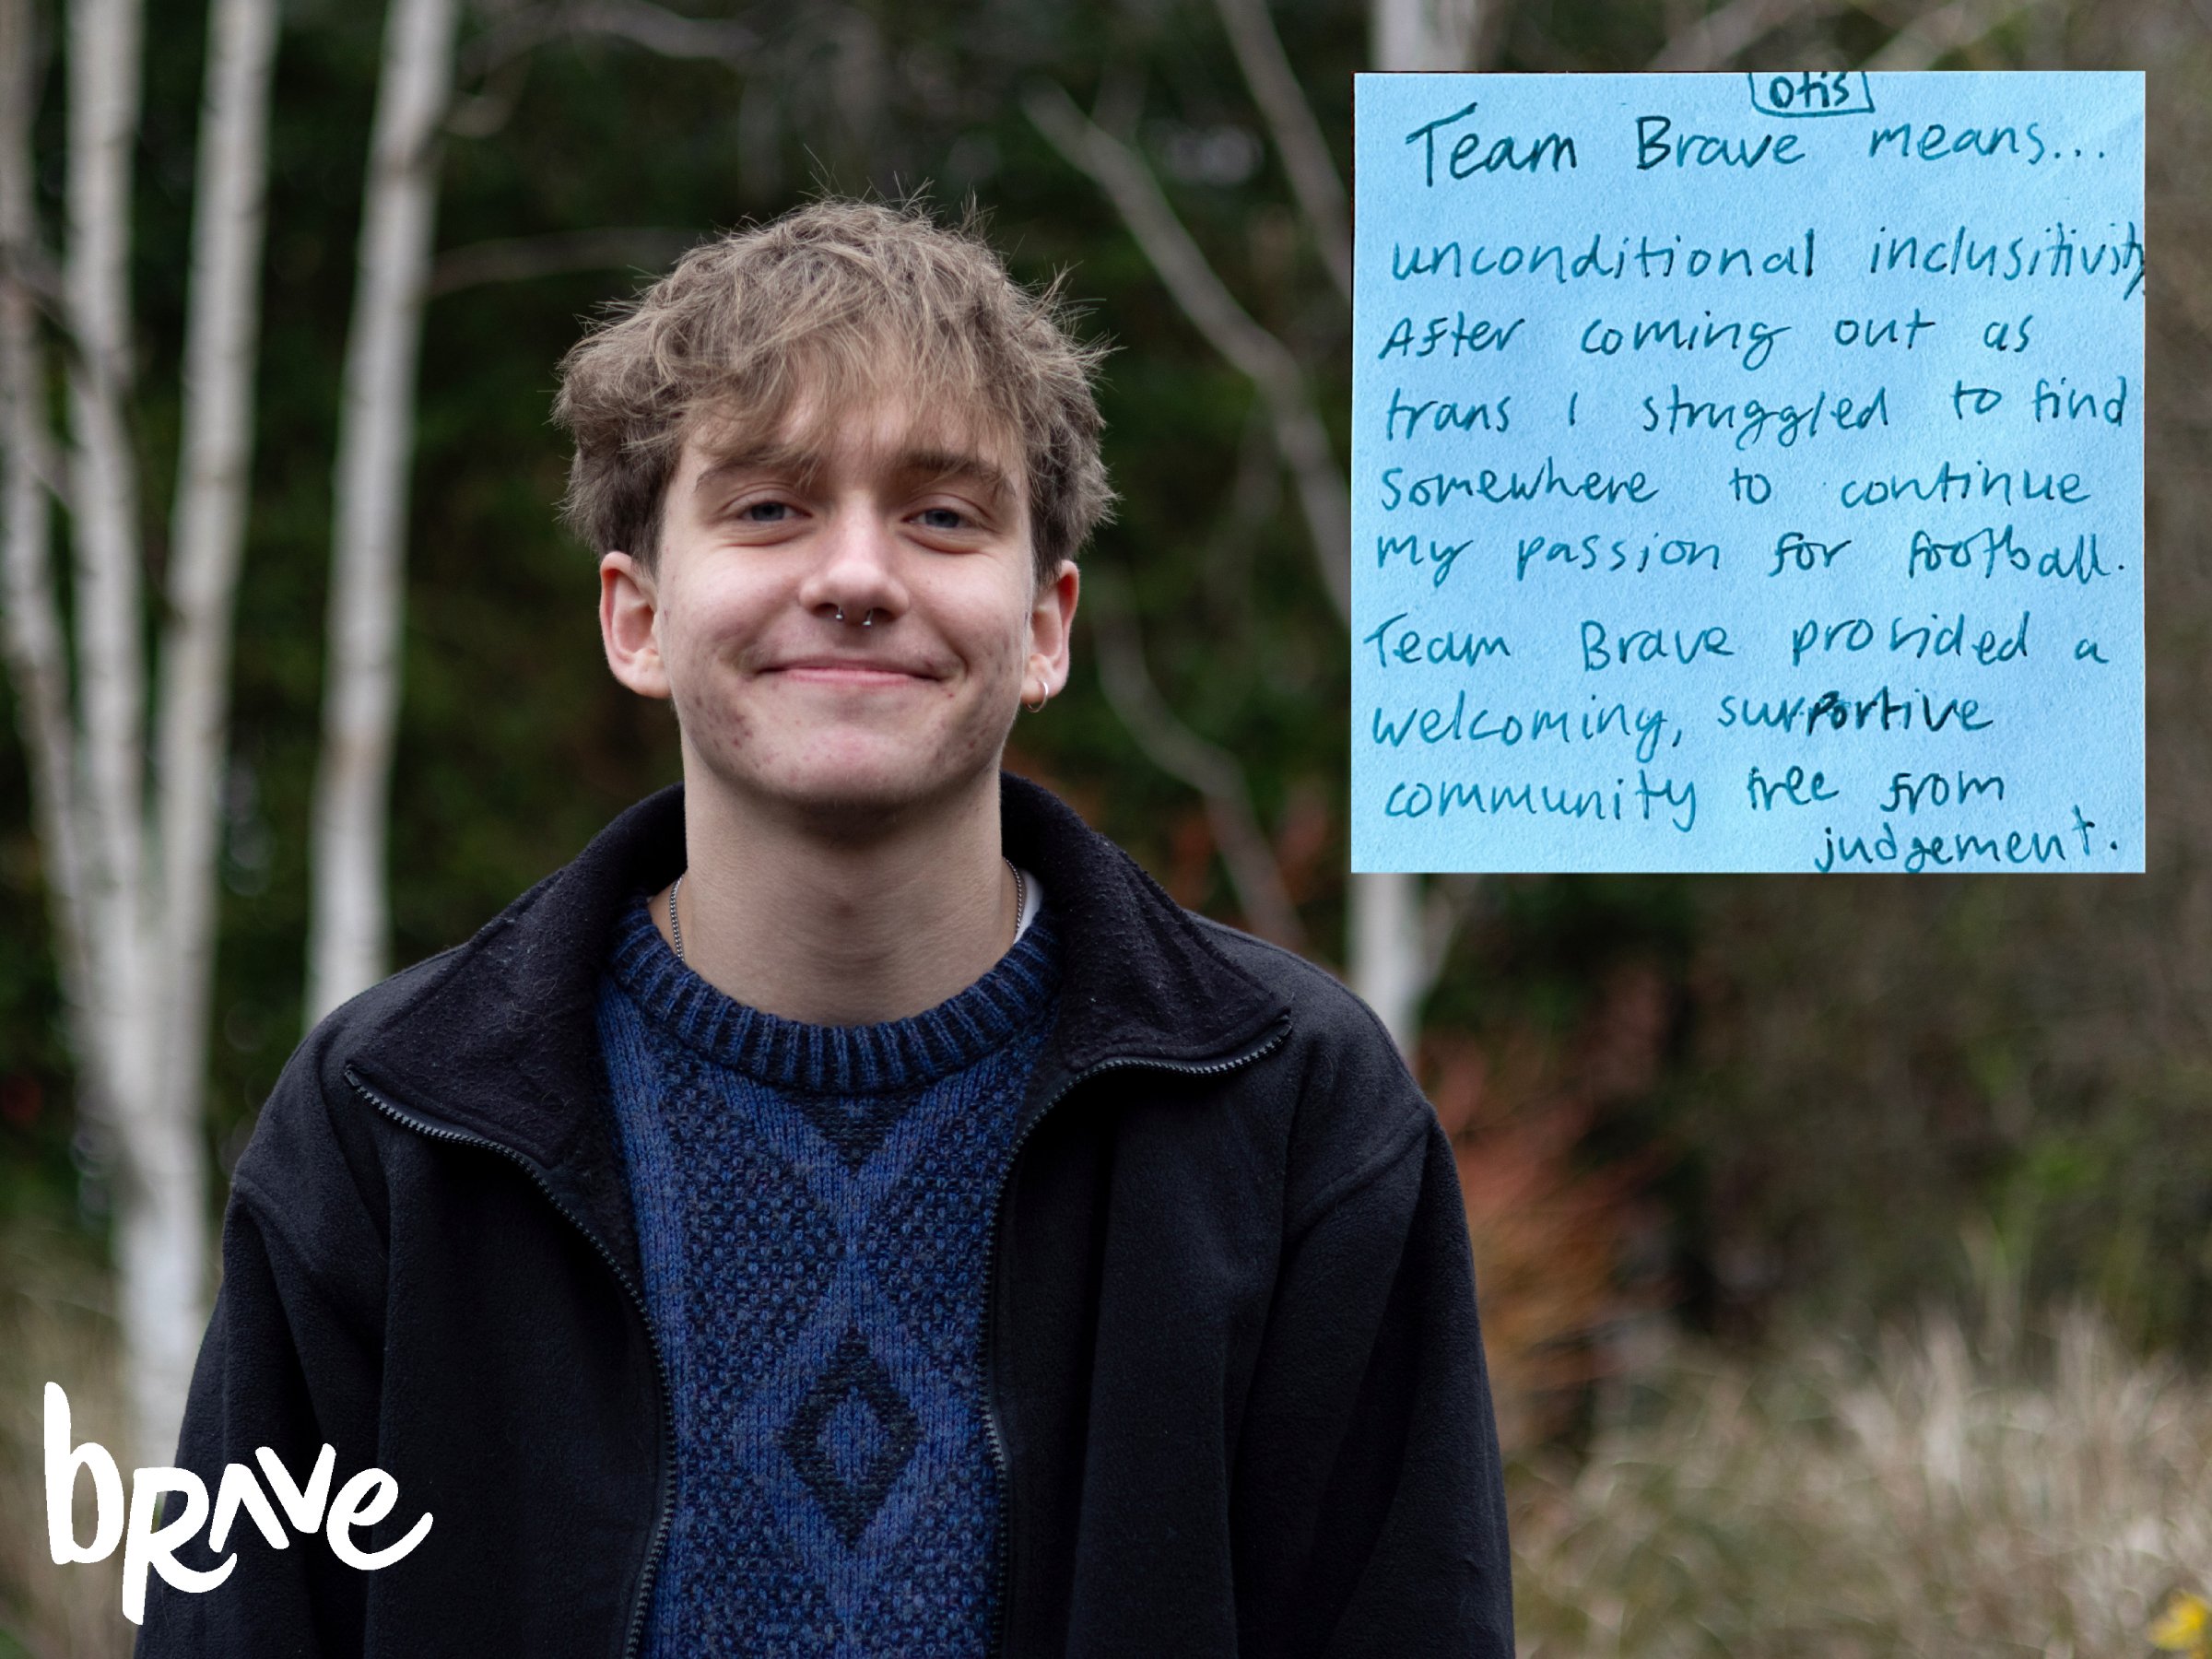 otis
Team Brave means...
unconditional inclusitivity
After coming out as
trans I struggled to find
somewhere to continue
my passion for football.
Team Brave provided a
welcoming, supportive
community free from
judgement.
brave